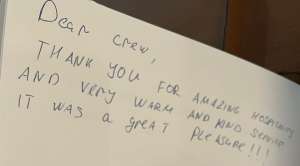 Dear crew,
THANK YOU FOR AMAZING HOSPITALITY
AND very WARM AND KIND SERVICE
IT WAS a great PLEASURE!!!